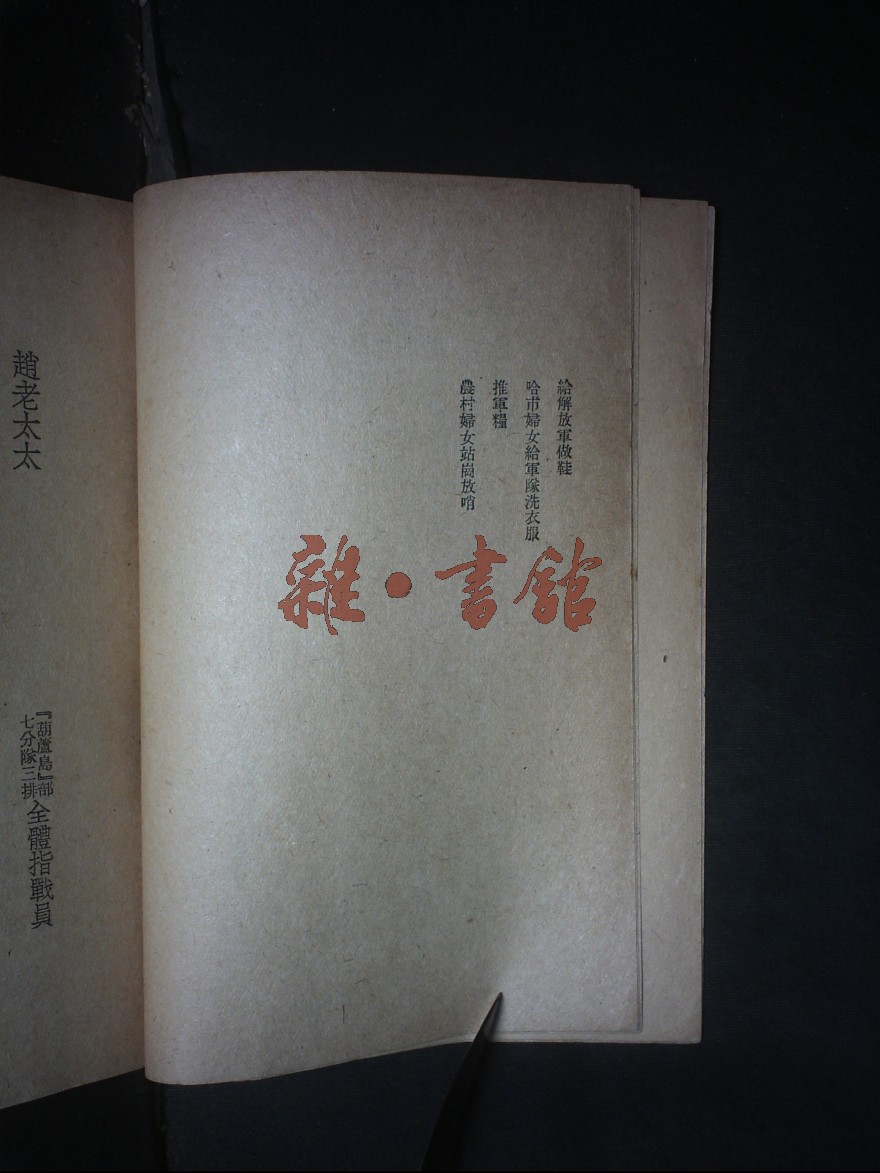 給解放軍做鞋
哈市婦女給軍隊洗衣服
推軍糧
農村婦女站崗放哨
雜•書館
趙老太太
『葫蘆島』部
七分隊三排
全體指戰員